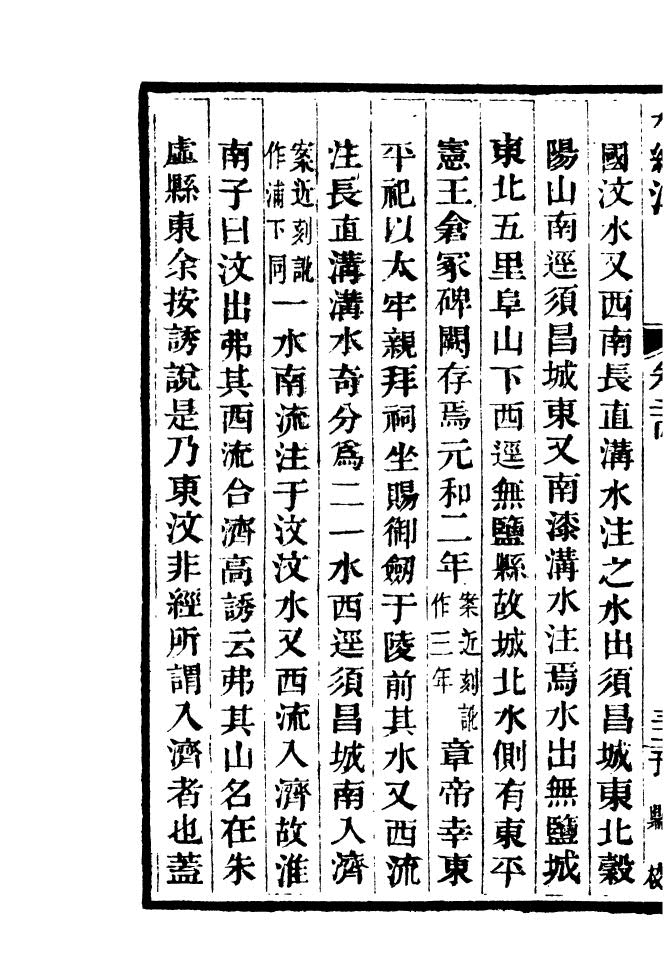 國汶水又西南長直溝水注之水出須昌城東北穀
陽山南逕須昌城東又南漆溝水注焉水出無鹽城
東北五里阜山下西逕無鹽縣故城北水側有東平
憲王倉冢碑闕存焉元和二年案近刻訛作三年章帝幸東
平祀以太牢親拜祠坐賜御劒于陵前其水又西流
注長直溝溝水奇分爲二一水西逕須昌城南入濟
案近刻訛作浦下同一水南流注于汶汶水又西流入濟故淮
南子曰汶出弗其西流合濟高誘云弗其山名在朱
虛縣東余按誘說是乃東汶非經所謂入濟者也蓋